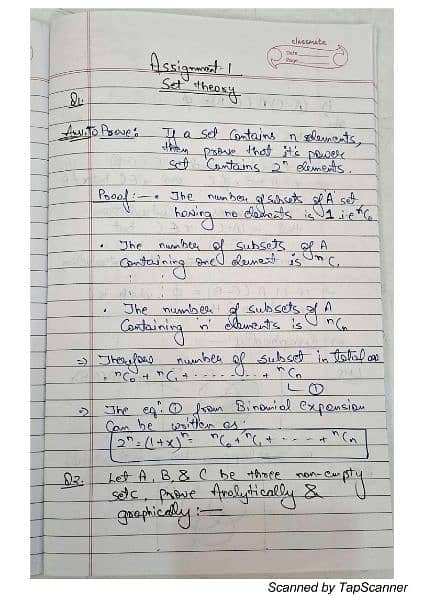 classmate
Date
Page
Assignment-1
Set theory
Q1.
Ans. To Prove:- If a set Contains n elements,
then prove that it's power
set Contains 2ⁿ elements.
Proof:- • The number of subsets of A set
having no elements is 1 i.e ⁿC₀
• The number of subsets of A
Containing one element is ⁿC₁
• The number of subsets of A
Containing 'n' elements is ⁿCₙ
⇒ Therefore number of subset in total are
ⁿC₀ + ⁿC₁ + ........ + ⁿCₙ
①
⇒ The eqⁿ ① from Binomial expansion
Can be written as:
2ⁿ = (1+x)ⁿ = ⁿC₀ + ⁿC₁ + - - - - + ⁿCₙ
Q2. Let A, B, & C be three non-empty
sets, prove Analytically &
graphically:-
Scanned by TapScanner